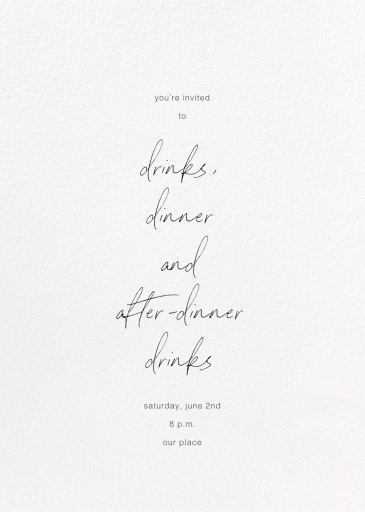 you're invited
to
drinks,
dinner
and
after-dinner
drinks
saturday, june 2nd
8 p.m.
our place